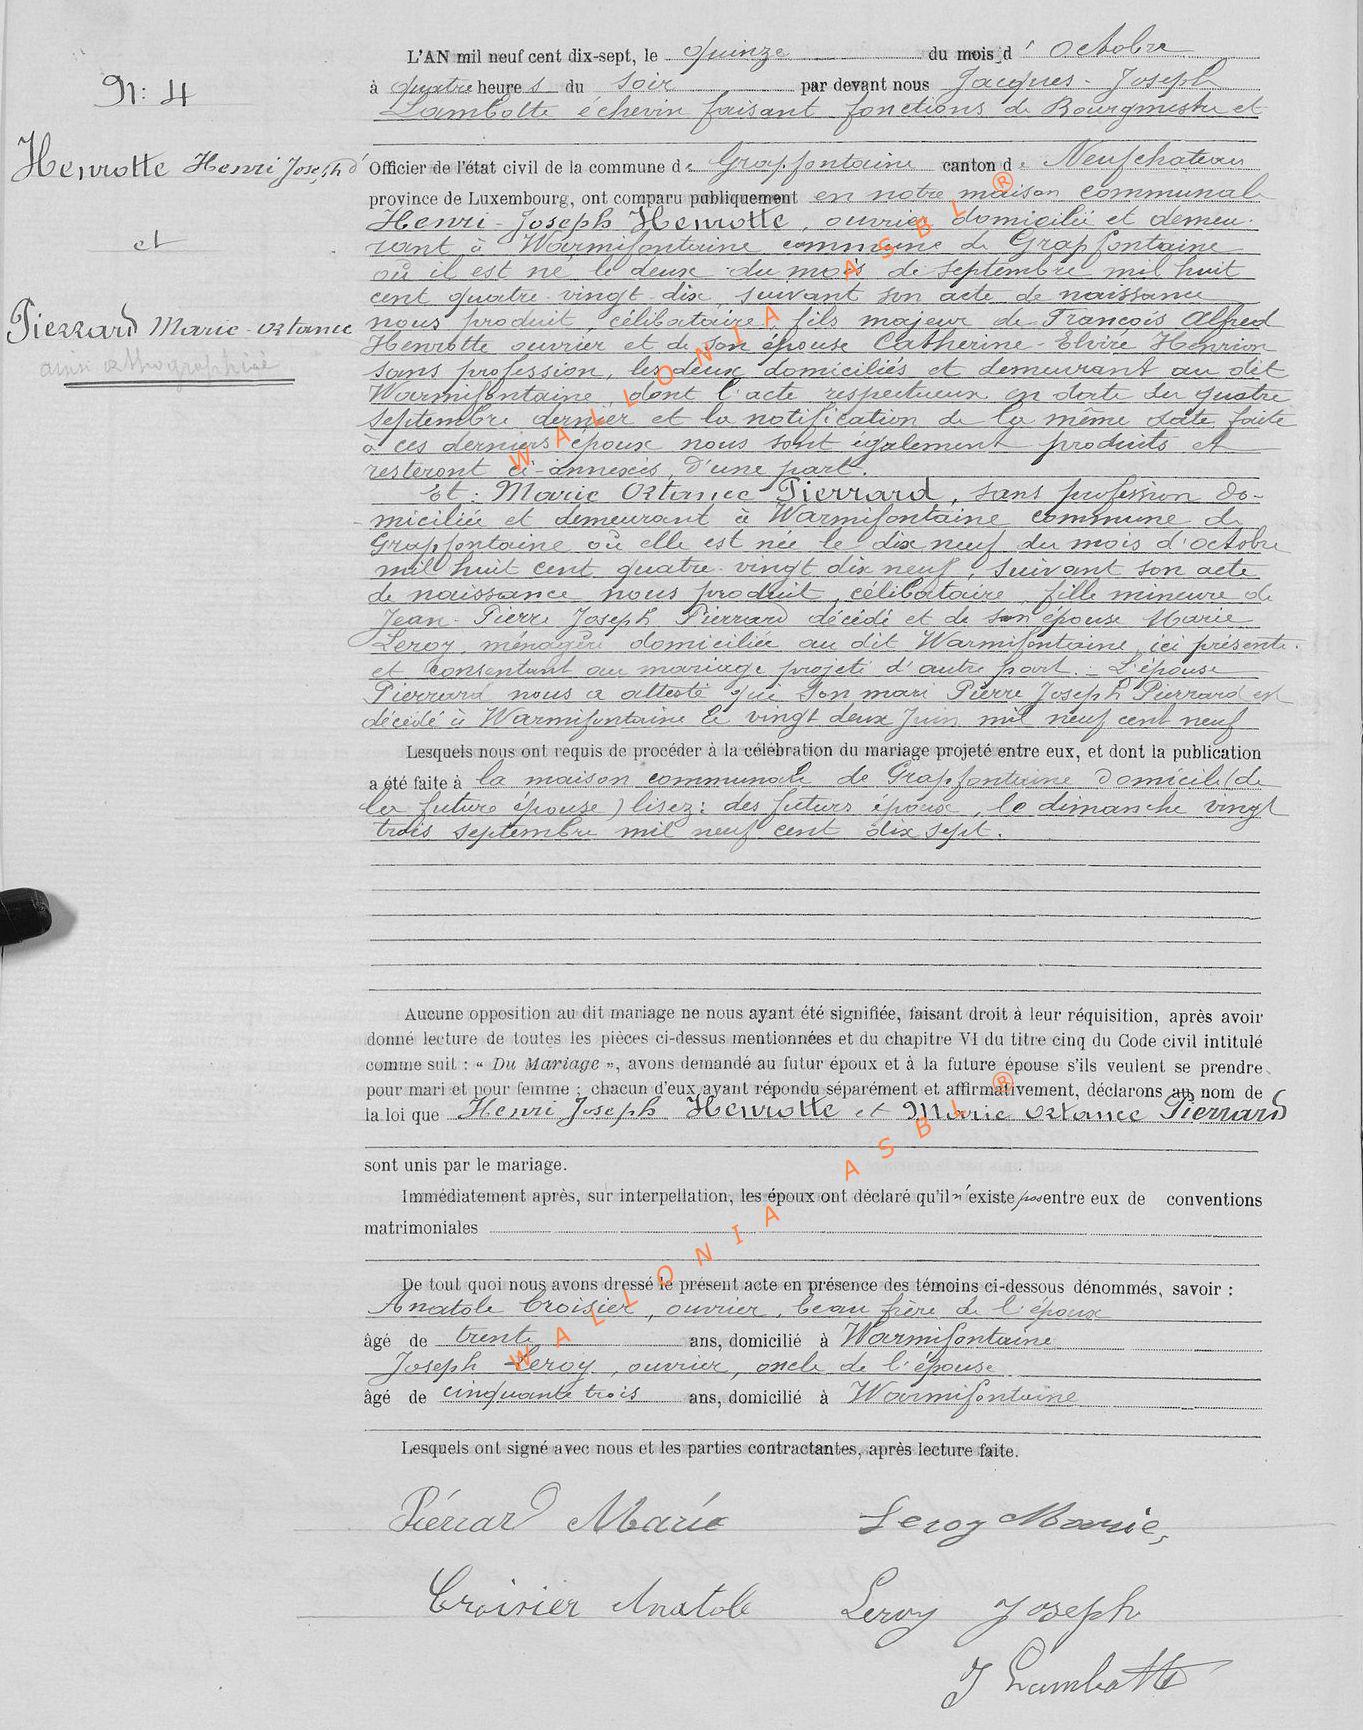 N: 4
Henrotte Henri Joseph
et
Pierrard Marie-Ortance
ainsi orthographié
L'AN mil neuf cent dix-sept, le quinze du mois d' Octobre
à quatre heures du soir par devant nous Jacques-Joseph
Lambotte échevin faisant fonctions de Bourgmestre et
Officier de l'état civil de la commune de Grapfontaine canton de Neufchateau
province de Luxembourg, ont comparu publiquement en notre maison communale
Henri-Joseph Henrotte, ouvrier domicilié et demeu-
rant à Warmifontaine commune de Grapfontaine
où il est né le deux du mois de septembre mil huit
cent quatre-vingt-dix, suivant son acte de naissance
nous produit, célibataire, fils majeur de François Alfred
Henrotte ouvrier et de son épouse Catherine-Elvire Henrion
sans profession, les deux domiciliés et demeurant au dit
Warmifontaine, dont l'acte respectueux en date du quatre
septembre dernier et la notification de la même date faite
à ces derniers époux nous sont également produits et
resteront ci-annexés, d'une part.
Et: Marie Ortance Pierrard, sans profession do-
miciliée et demeurant à Warmifontaine commune de
Grapfontaine où elle est née le dix neuf du mois d'octobre
mil huit cent quatre-vingt dix neuf, suivant son acte
de naissance nous produit, célibataire, fille mineure de
Jean-Pierre Joseph Pierrard décédé et de son épouse Marie
Leroy, ménagère domiciliée au dit Warmifontaine, ici présente
et consentant au mariage projeté d'autre part. - L'épouse
Pierrard nous a attesté que son mari Pierre Joseph Pierrard est
décédé à Warmifontaine le vingt deux Juin mil neuf cent neuf
Lesquels nous ont requis de procéder à la célébration du mariage projeté entre eux, et dont la publication
a été faite à la maison communale de Grapfontaine domicile (de
la future épouse) lisez: des futurs époux, le dimanche vingt
trois septembre mil neuf cent dix sept.
Aucune opposition au dit mariage ne nous ayant été signifiée, faisant droit à leur réquisition, après avoir
donné lecture de toutes les pièces ci-dessus mentionnées et du chapitre VI du titre cinq du Code civil intitulé
comme suit : « Du Mariage », avons demandé au futur époux et à la future épouse s'ils veulent se prendre
pour mari et pour femme ; chacun d'eux ayant répondu séparément et affirmativement, déclarons au nom de
la loi que Henri Joseph Henrotte et Marie Ortance Pierrard
sont unis par le mariage.
Immédiatement après, sur interpellation, les époux ont déclaré qu'il n'existe pas entre eux de conventions
matrimoniales
De tout quoi nous avons dressé le présent acte en présence des témoins ci-dessous dénommés, savoir :
Anatole Croisier, ouvrier, beau frère de l'époux
âgé de trente ans, domicilié à Warmifontaine
Joseph Leroy, ouvrier, oncle de l'épouse
âgé de cinquante trois ans, domicilié à Warmifontaine
Lesquels ont signé avec nous et les parties contractantes, après lecture faite.
Piérrard Marie Leroy Marie,
Croisier Anatole Leroy Joseph
J Lambotte
WALLONIA ASBL ®
WALLONIA ASBL ®